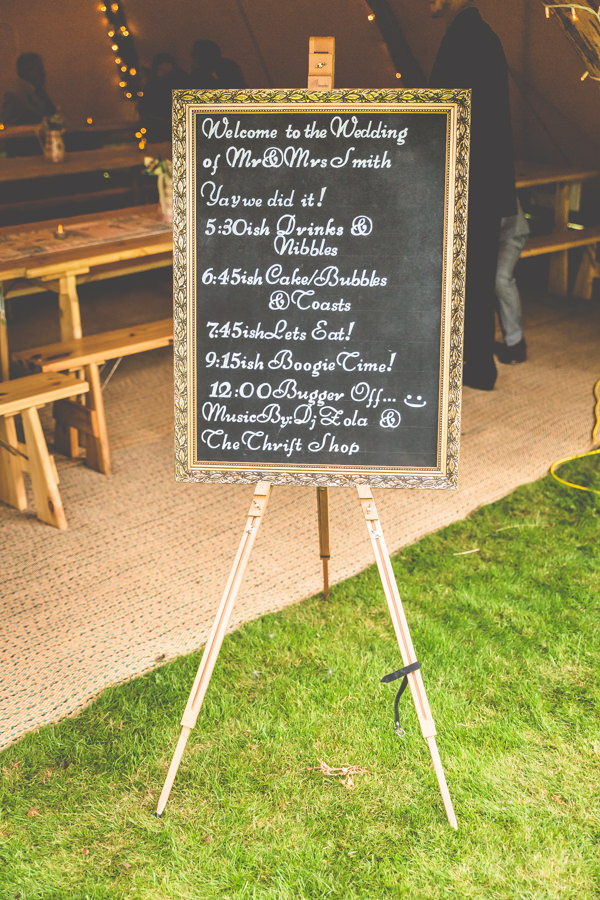 Welcome to the Wedding
of Mr&Mrs Smith
Yay we did it!
5:30ish Drinks &
Nibbles
6:45ish Cake/Bubbles
& Toasts
7:45ish Lets Eat!
9:15ish Boogie Time!
12:00 Bugger Off... :)
Music By: Dj Lola &
The Thrift Shop